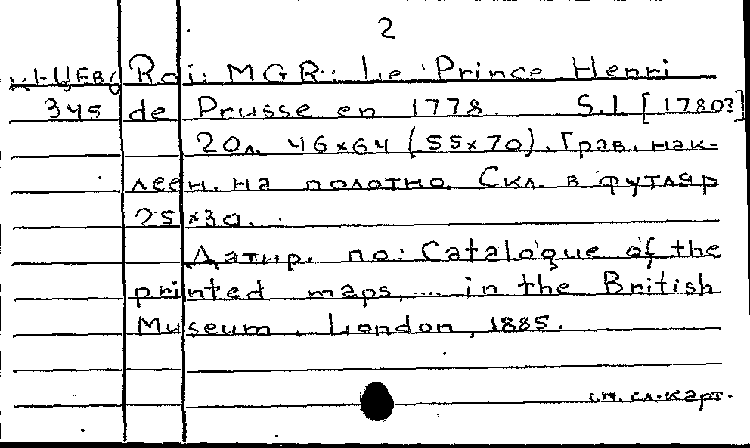 2
Roi. M.G.R.: Le Prince Henri
345 de Prusse en 1778. S.l. [1780?]
20л. 46×64 (55×70). Грав. нак-
леен. на полотно. Скл. в футляр
25×30.
Датир. по: Catalogue of the
printed maps, ... in the British
Museum. London, 1885.
см. сл. карт.